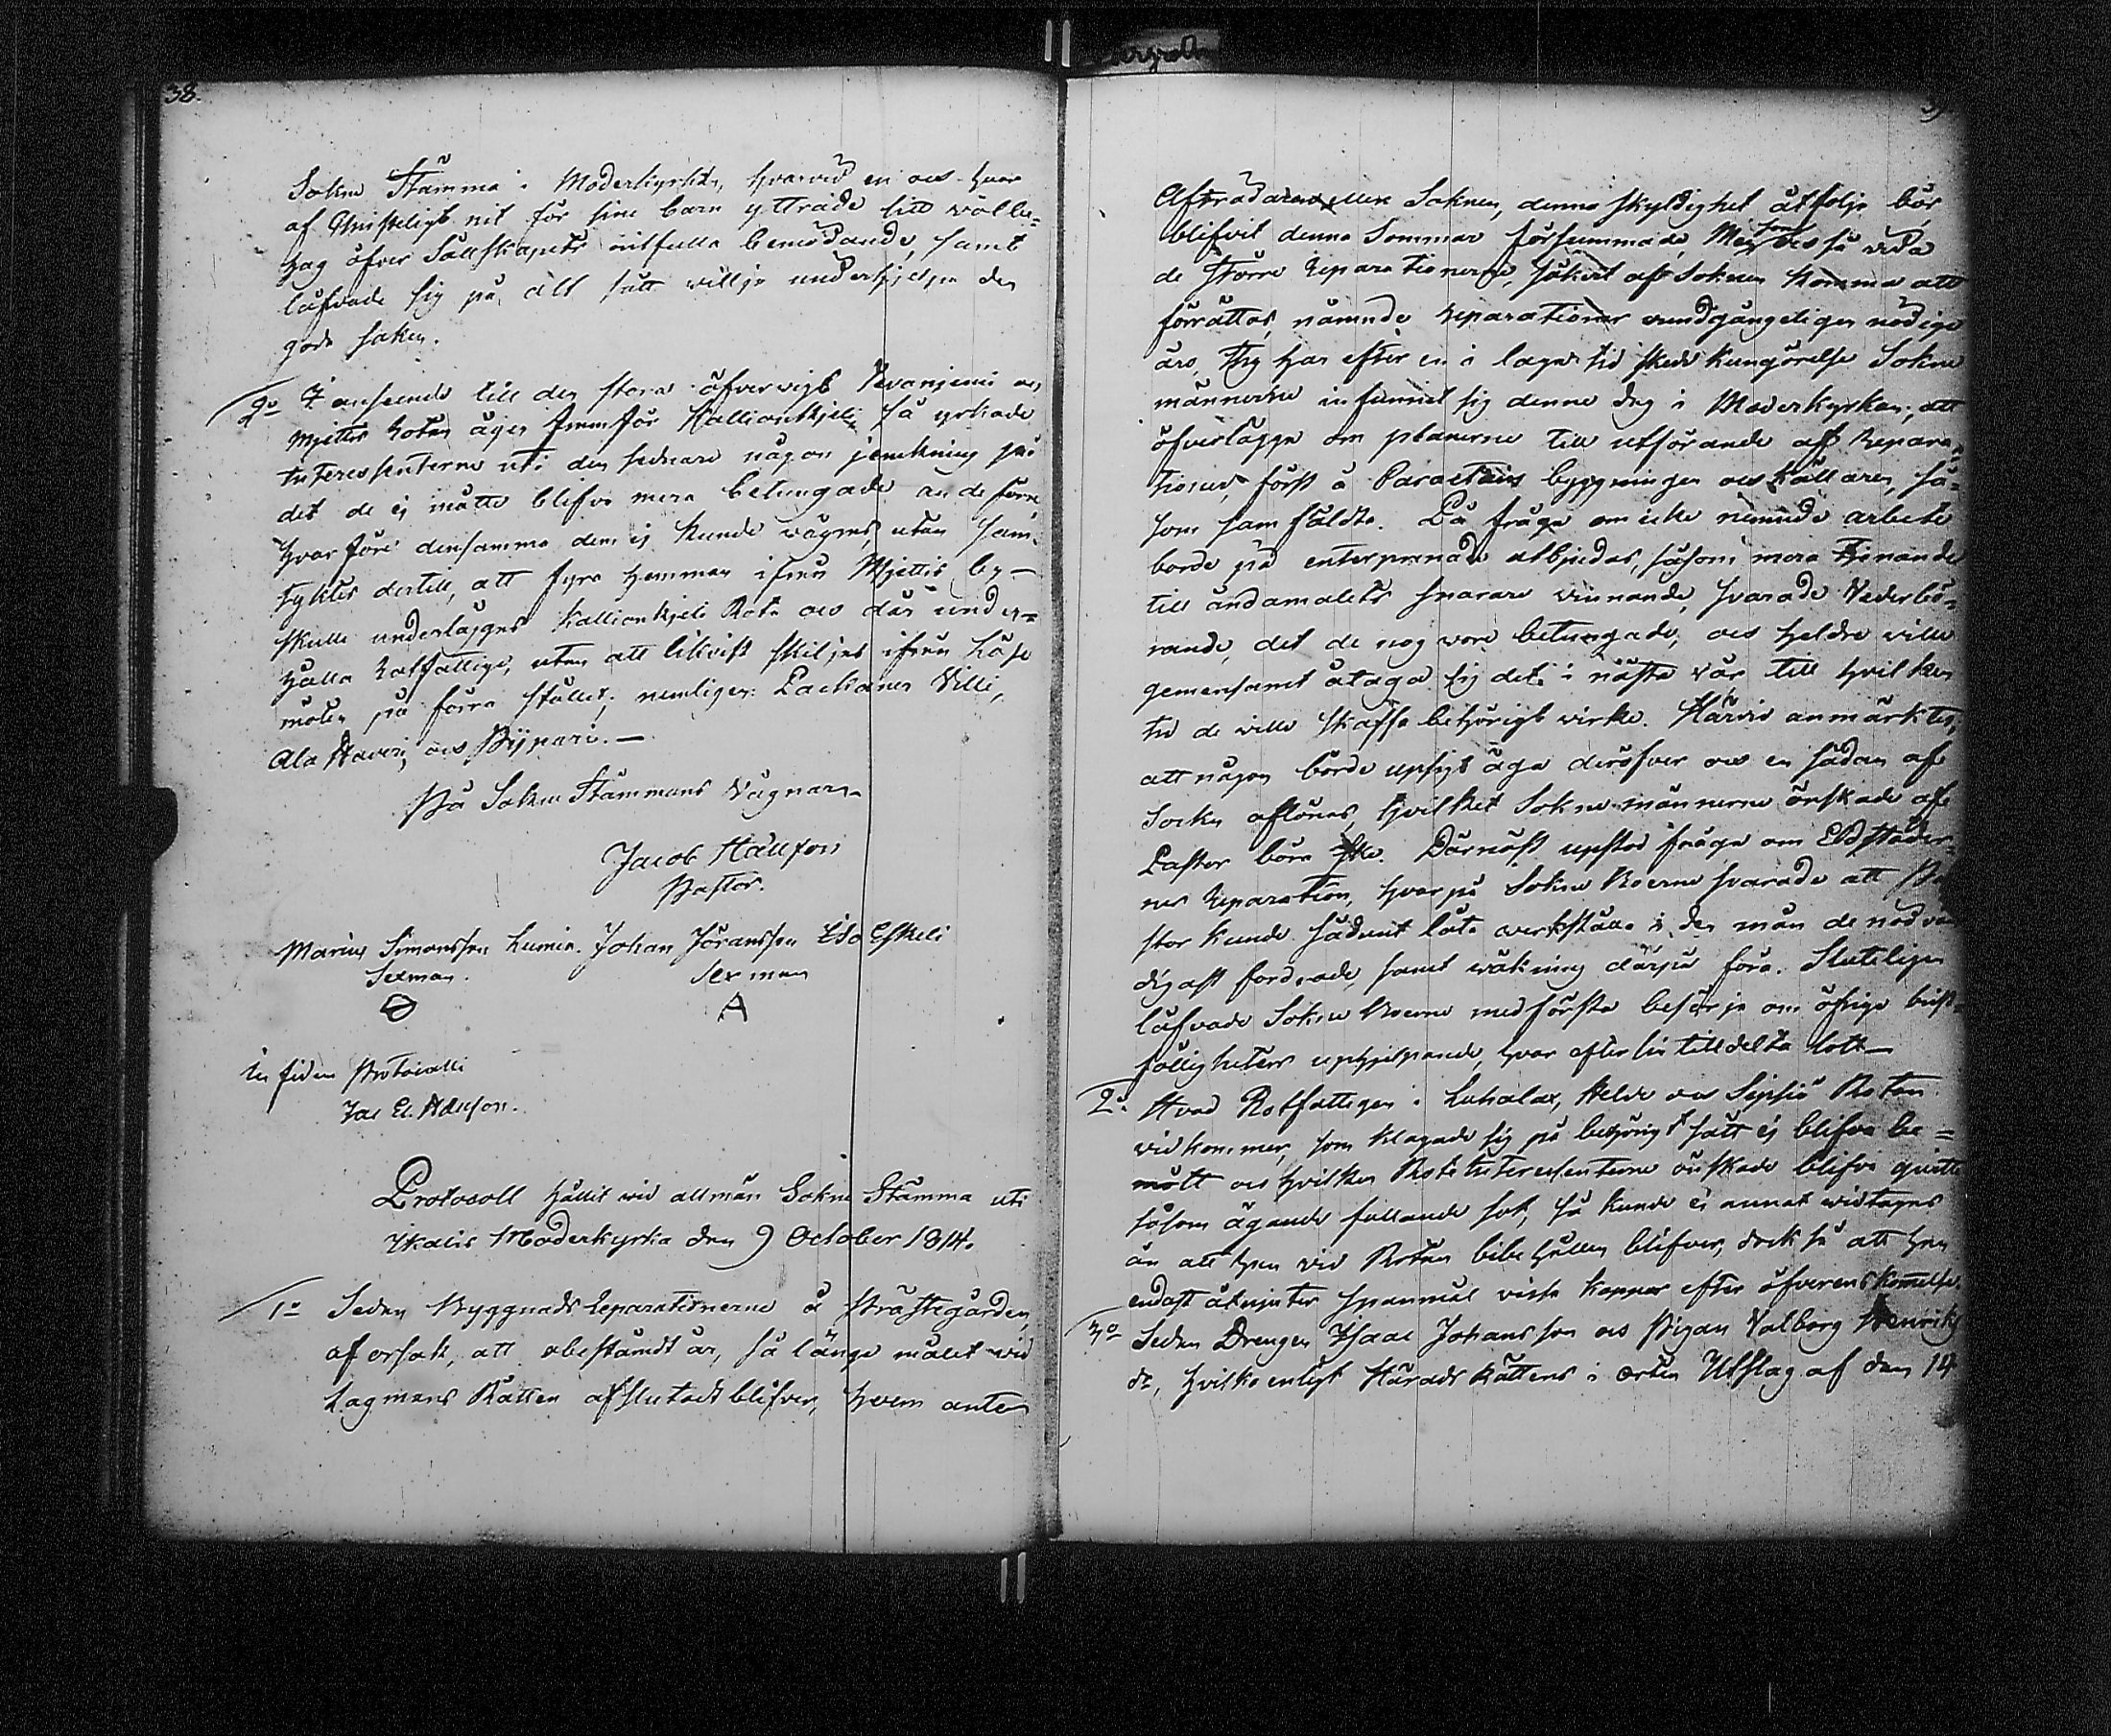 38.
Sokne Stämma i Moderkyrkan, hvarvid en och hvar
af Christeligt nit för sine barn yttrade sitt välbe-
hag öfver Sällskapets nitfulla bemödande, samt
låfvade sig på allt sätt villja understjelpa den
goda saken.
2o I anseende till den stora öfvervigt Kovanjemi och
Mjettis Rotan äger framför Kallionkjeli, så yrkade
Interessenterne uti den sednare någon jemkning på
det de ej måtte blifva mera betungade än de förre
hvarföre densamma dem ej kunde vägras, utan sam-
tyktes dertill, att fyra hemman ifrån Mjettis by-
skulle underläggas Kallionkjeli Rota och där under-
hålla Rotfattige, utan att likvist skiljas ifrån Läse
möten på förra stället, nemligen: Packanen Villi,
Ala Haveri, och Pijpari. —
På Sokne Stämmans Vägnar
Jacob Hällfors
Pastor.
Marius Simonsson Lumia. Johan Jöransson Iso Eskeli
Sexman. Sexman
A
In fidem Protocolli
Jac. E.
Protocoll hållit vid allmän Sokne Stämma uti
Ikalis Moderkyrka den 9 October 1814.
1o Sedan Byggnads Reparationerne å Prästegården,
af orsak, att obestämdt är, så länge målet vid
Lagmans Rätten afslutadt blifver, hvem antes
Afträdaren eller Soknen, denna skyldighet åtfölje bör
blifvit denna Sommar försummade, Men som och så vida
de större Reparationerne, säkert af Soknen komma att
förrättas, nämnde Reparationer oundgängeligen nödige
äro, Thy har efter en i lagen tid skedd kungörelse Sokne
männerne infunnit sig denne dag i Moderkyrkan, att
öfverlägga om planerne till utförande af Repara-
tioner, först å Paracturs byggningen och Källaren, så-
som samfäldte. På fråga om icke nämnde arbete
borde på enterprenade utbjudas, såsom mera tjenande
till ändamålets snarare vinnande, svarade Vederbö-
rande, det de nog vore betungade, och heldre ville
gemensamt åtaga sig det i nästa vår till hvilken
tid de ville skaffa behörigt virke. Härvid anmärktes,
att någon borde upsigt äga deröfver och en sådan af
Socken aflönas, hvilket Sokne männerne önskade af
Pastor böra ske. Därnäst upstod fråga om Eldstäder-
nes Reparation, hvarpå Sokne Boerne svarade att Pa
stor kunde sådant låta verkställa i den mån de nödvän
digast fordrade, samt räkning därpå föra. Sluteligen
låfvade Sokne Boerne med första besörja om öfrige brist-
fälligheters uphjelpande, hvar efter sin tilldelta lott —
2o Hvad Rotfattigen i Luhalax, Kelvi och Sipsiö Rotan
vidkommer, som klagade sig på behörigt sätt ej blifva be=
mött och hvilken Rote Interessenterne önskade blifva quitte
såsom ägande fallande sot, så kunde ej annat vidtagas
än att han vid Rotan bibehållen blifver, dock så att han
endast åtnjuter spanmål vissa kappar efter öfverenskommelse.
3o Sedan Drengen Isaac Johansson och Pigan Valborg Henriks
dr, hvilka enligt Härads Rättens i orten Utslag af den 14